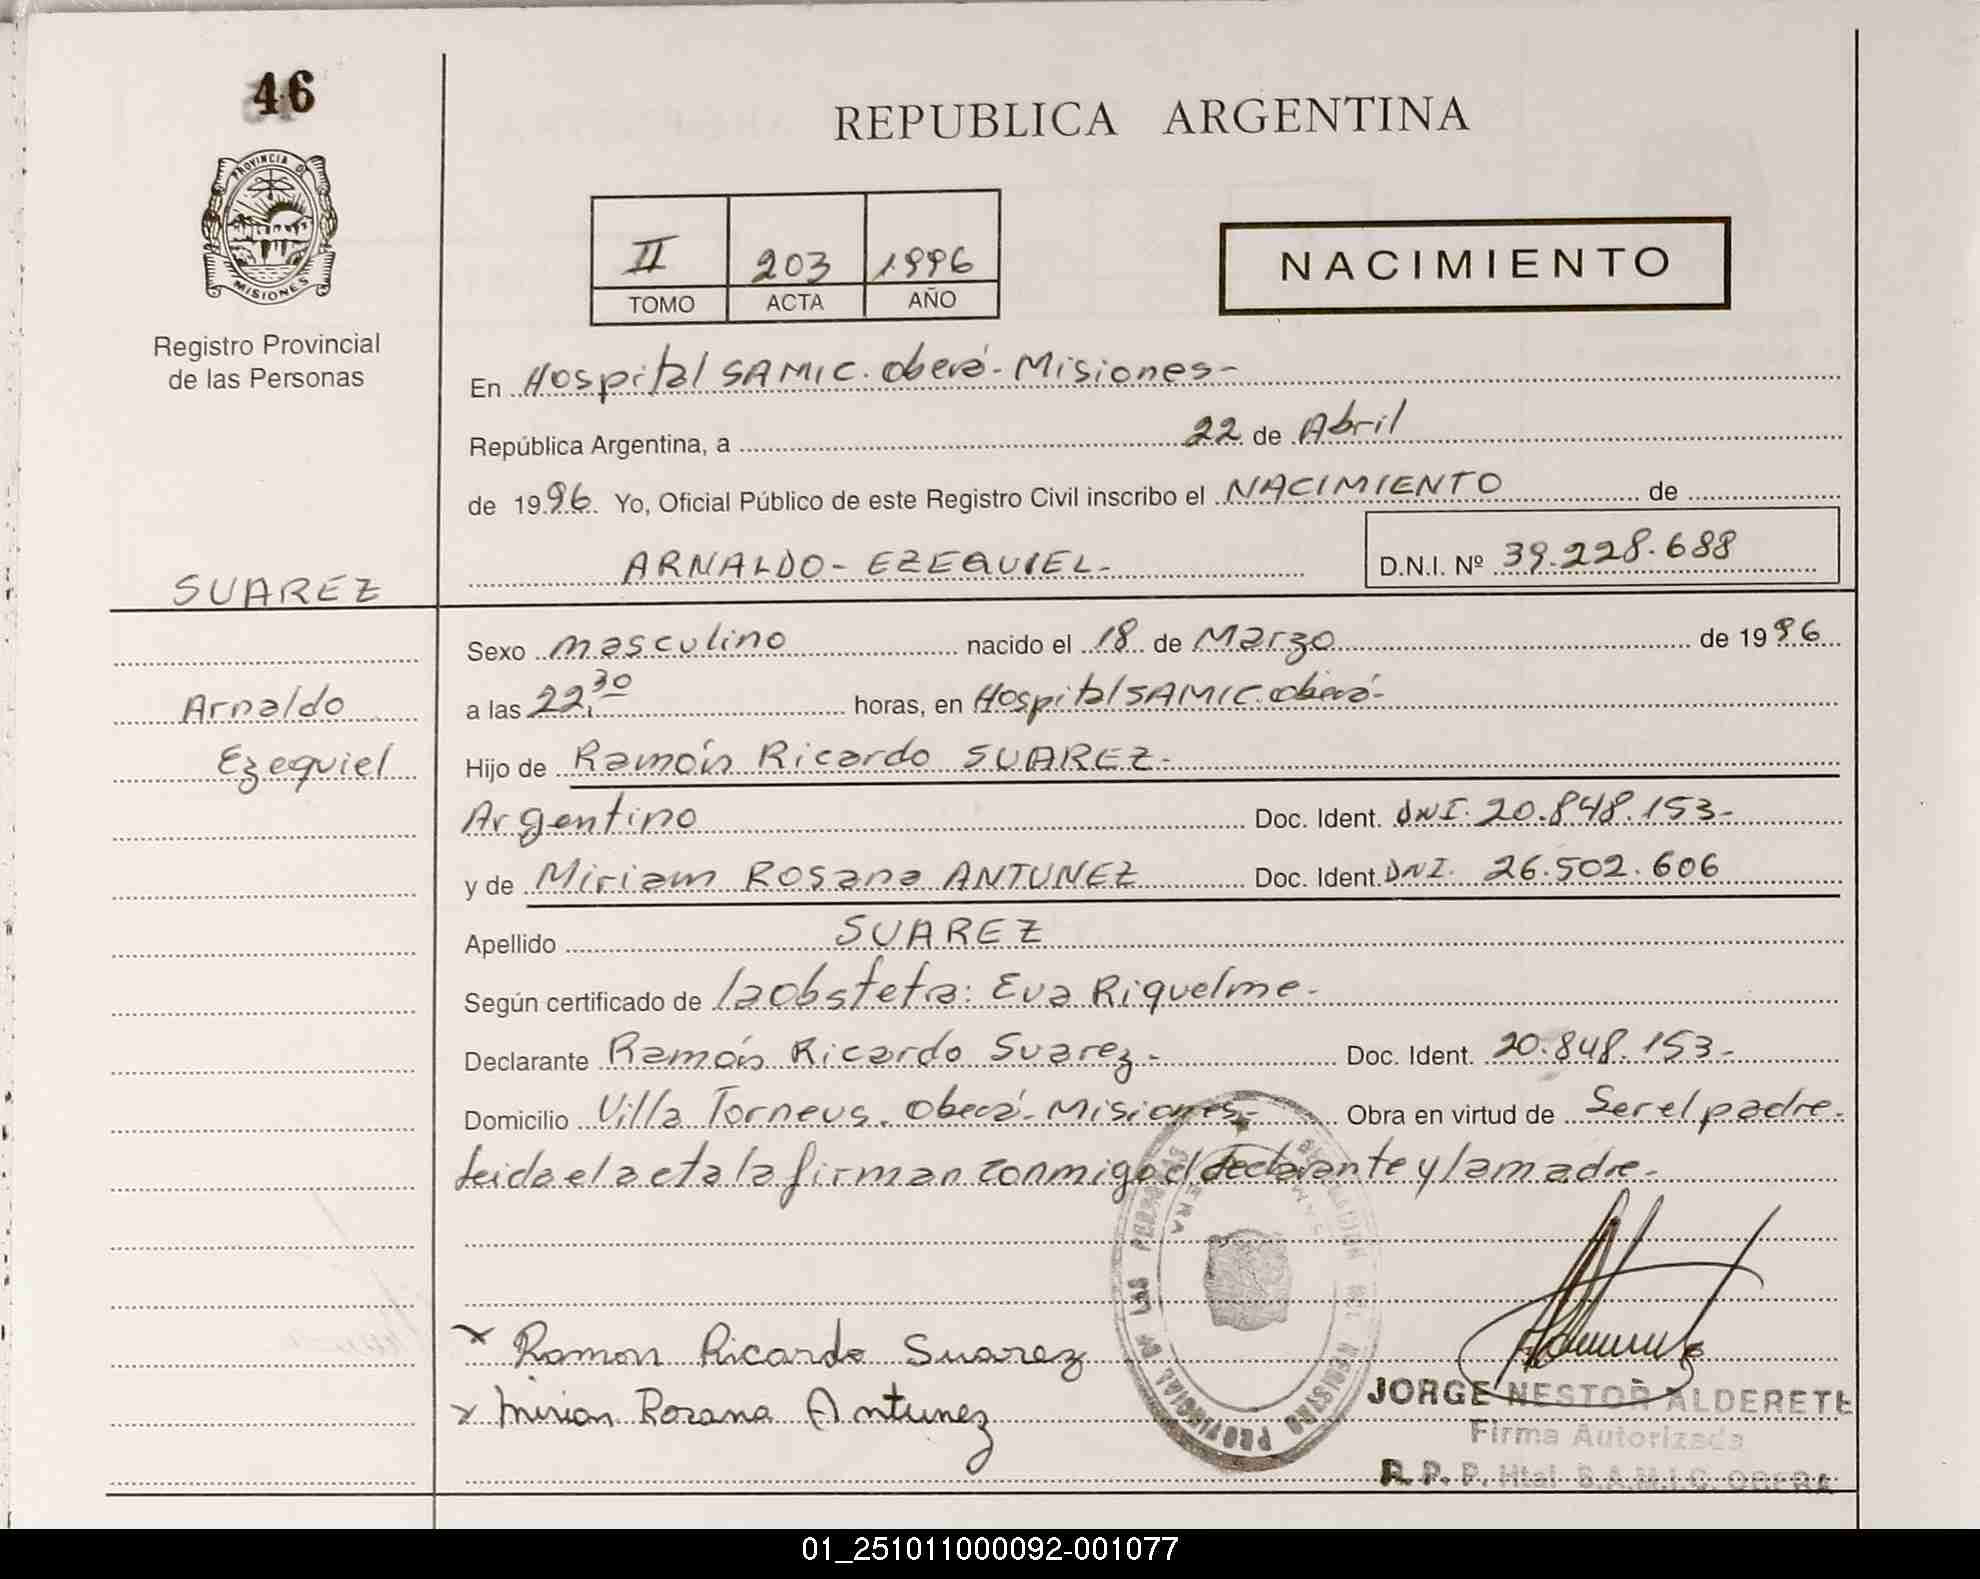 46
REPUBLICA ARGENTINA
PROVINCIA DE
MISIONES
Registro Provincial
de las Personas
II 203 1996
TOMO ACTA AÑO
NACIMIENTO
En Hospital SAMIC. Oberá - Misiones -
República Argentina, a 22 de Abril
de 1996. Yo, Oficial Público de este Registro Civil inscribo el NACIMIENTO de
ARNALDO - EZEQUIEL - D.N.I. Nº 39.228.688
SUAREZ
Arnaldo
Ezequiel
Sexo masculino nacido el 18 de Marzo de 1996
a las 22,30 horas, en Hospital SAMIC. Oberá -
Hijo de Ramón Ricardo SUAREZ -
Argentino Doc. Ident. DNI. 20.848.153 -
y de Miriam Rosana ANTUNEZ Doc. Ident. DNI. 26.502.606
Apellido SUAREZ
Según certificado de la obstetra: Eva Riquelme -
Declarante Ramón Ricardo Suarez - Doc. Ident. 20.848.153 -
Domicilio Villa Torneus. Oberá - Misiones - Obra en virtud de Ser el padre -
Leida el acta la firman conmigo el declarante y la madre -
x Ramon Ricardo Suarez
x Mirian Rozana Antunez
REGISTRO PROVINCIAL DE LAS PERSONAS
JORGE NESTOR ALDERETE
Firma Autorizada
R. P. P. Htal S.A.M.I.C. OBERA
01_251011000092-001077